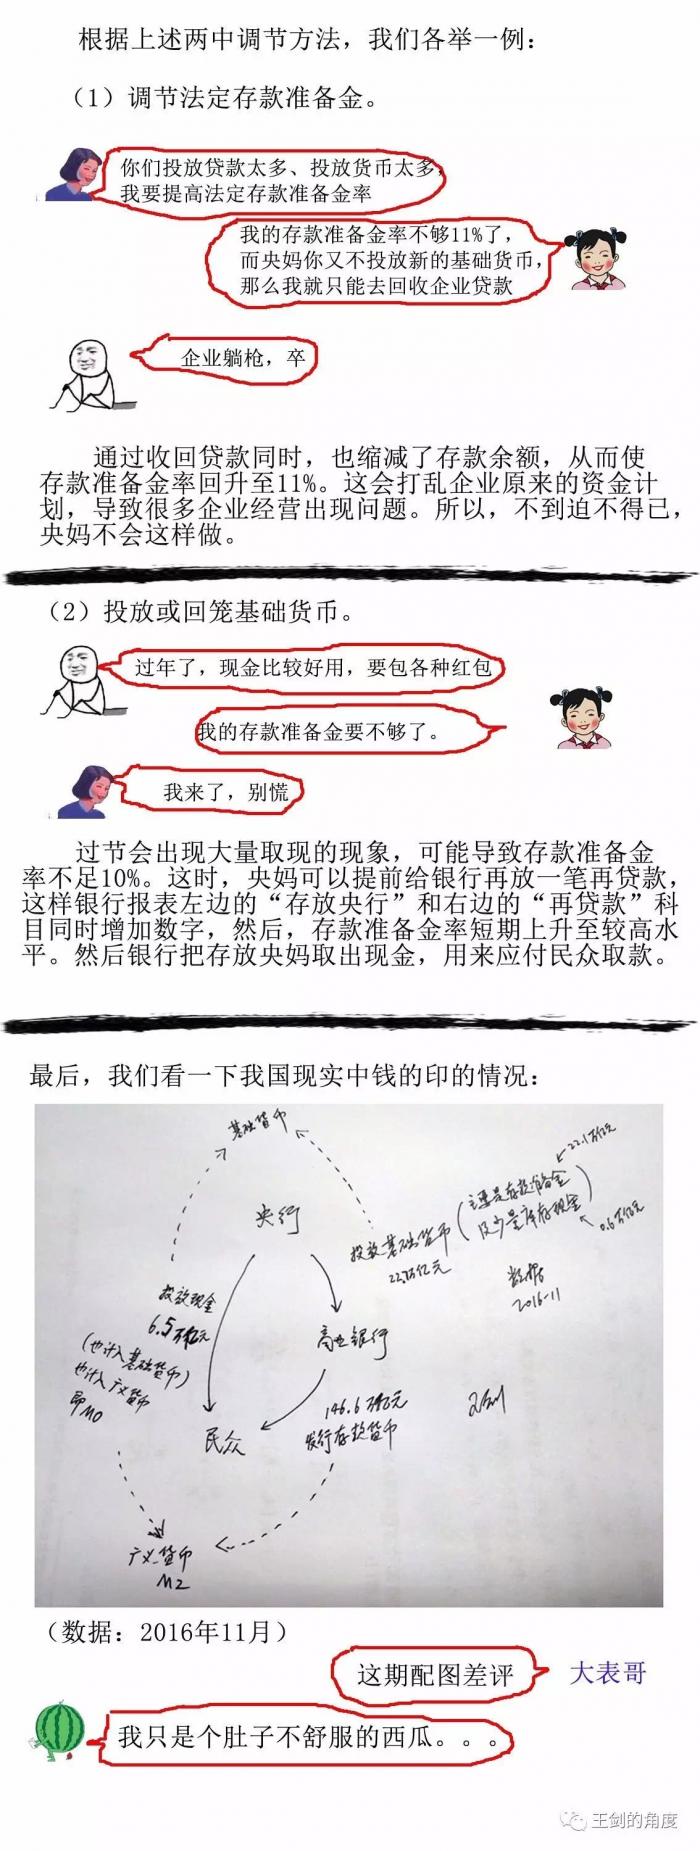 根据上述两中调节方法，我们各举一例：
（1）调节法定存款准备金。
你们投放贷款太多、投放货币太多，
我要提高法定存款准备金率
我的存款准备金率不够11%了，
而央妈你又不投放新的基础货币，
那么我就只能去回收企业贷款
企业躺枪，卒
通过收回贷款同时，也缩减了存款余额，从而使
存款准备金率回升至11%。这会打乱企业原来的资金计
划，导致很多企业经营出现问题。所以，不到迫不得已，
央妈不会这样做。
（2）投放或回笼基础货币。
过年了，现金比较好用，要包各种红包
我的存款准备金要不够了。
我来了，别慌
过节会出现大量取现的现象，可能导致存款准备金
率不足10%。这时，央妈可以提前给银行再放一笔再贷款，
这样银行报表左边的“存放央行”和右边的“再贷款”科
目同时增加数字，然后，存款准备金率短期上升至较高水
平。然后银行把存放央妈取出现金，用来应付民众取款。
最后，我们看一下我国现实中钱的印的情况：
基础货币
22.1万亿元
央行
主要是存款准备金
及少量库存现金
投放基础货币
22.7万亿元
0.6万亿元
数据
2016-11
投放现金
6.5万亿元
（也计入基础货币）
也计入广义货币
即M0
商业银行
146.6万亿元
发行存款货币
民众
广义货币
M2
（数据：2016年11月）
这期配图差评
大表哥
我只是个肚子不舒服的西瓜。。。
王剑的角度